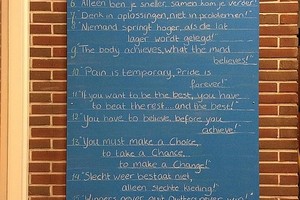 6. "Alleen ben je sneller, samen kom je verder!"
7. "Denk in oplossingen, niet in problemen!"
8. "Niemand springt hoger, als de lat
lager wordt gelegd!"
9. "The body achieves, what the mind
believes!"
10. "Pain is temporary, Pride is
forever!"
11. "If you want to be the best, you have
to beat the rest...and the best!"
12. "You have to believe, before you
achieve!"
13. "You must make a Choice,
to take a Chance,
to make a Change!"
14. "Slecht weer bestaat niet,
alleen slechte kleding!"
15. "Winners never quit, Quitters never win!"